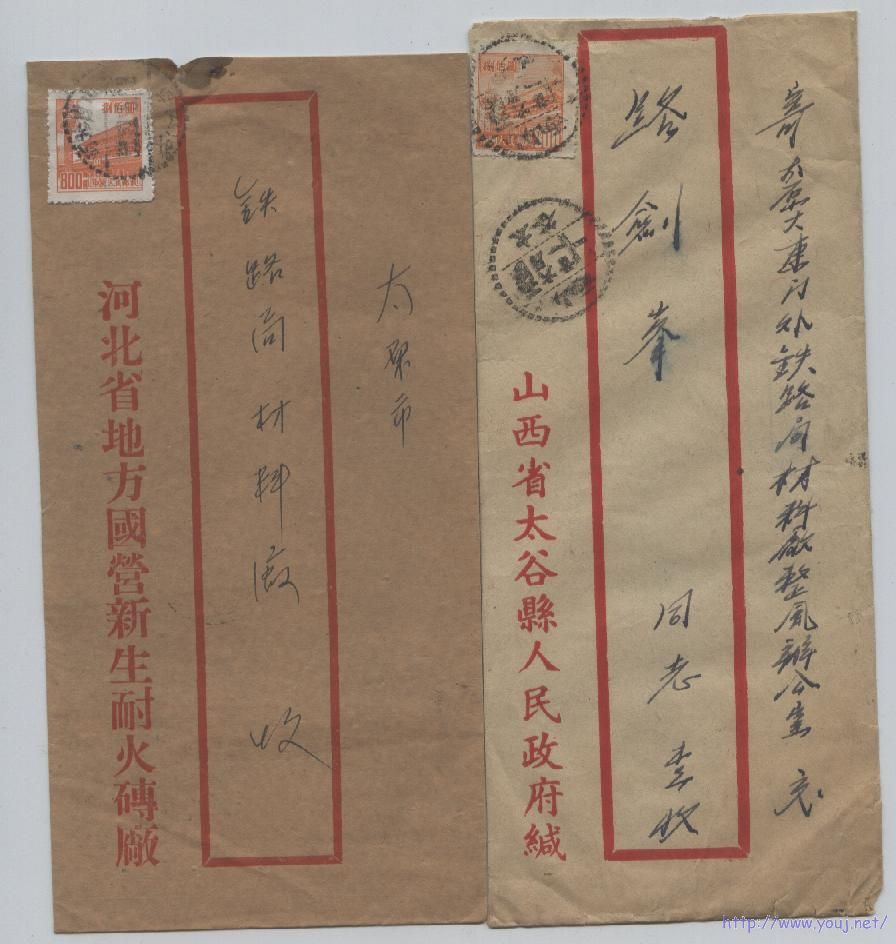 捌佰圓
800
太原市
铁路局材料廠
收
河北省地方國營新生耐火磚廠
寄太原大東门外铁路局材料廠整風辦公室交
路劍峯
同志查收
捌佰圓
山西省太谷縣人民政府緘
http://www.youj.net/